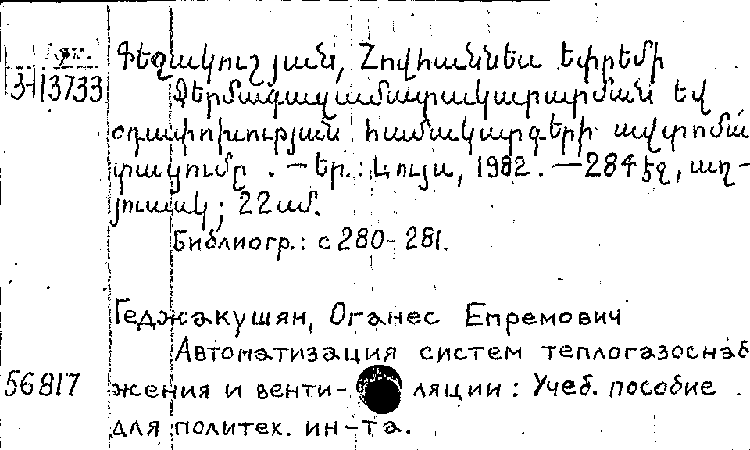 Գեջակուշյան, Հովհաննես Եփրեմի
3-113733
Ջերմագազամատակարարման եվ
օդափոխության համակարգերի ավտոմա
տացումը. — Եր.: Լույս, 1982. — 284 էջ, աղ-
յուսակ; 22 սմ.
Библиогр.: с 280-281.
Геджакушян, Оганес Епремович
Автоматизация систем теплогазоснаб
56817 жения и венти- ляции: Учеб. пособие
для политек. ин-та.